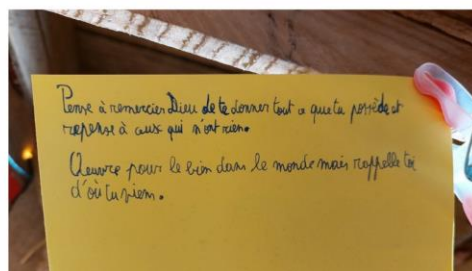 Pense à remercier Dieu de te donner tout ce que tu possède et
repense à ceux qui n'ont rien.
Oeuvre pour le bien dans le monde mais rappelle toi
d'où tu viens.